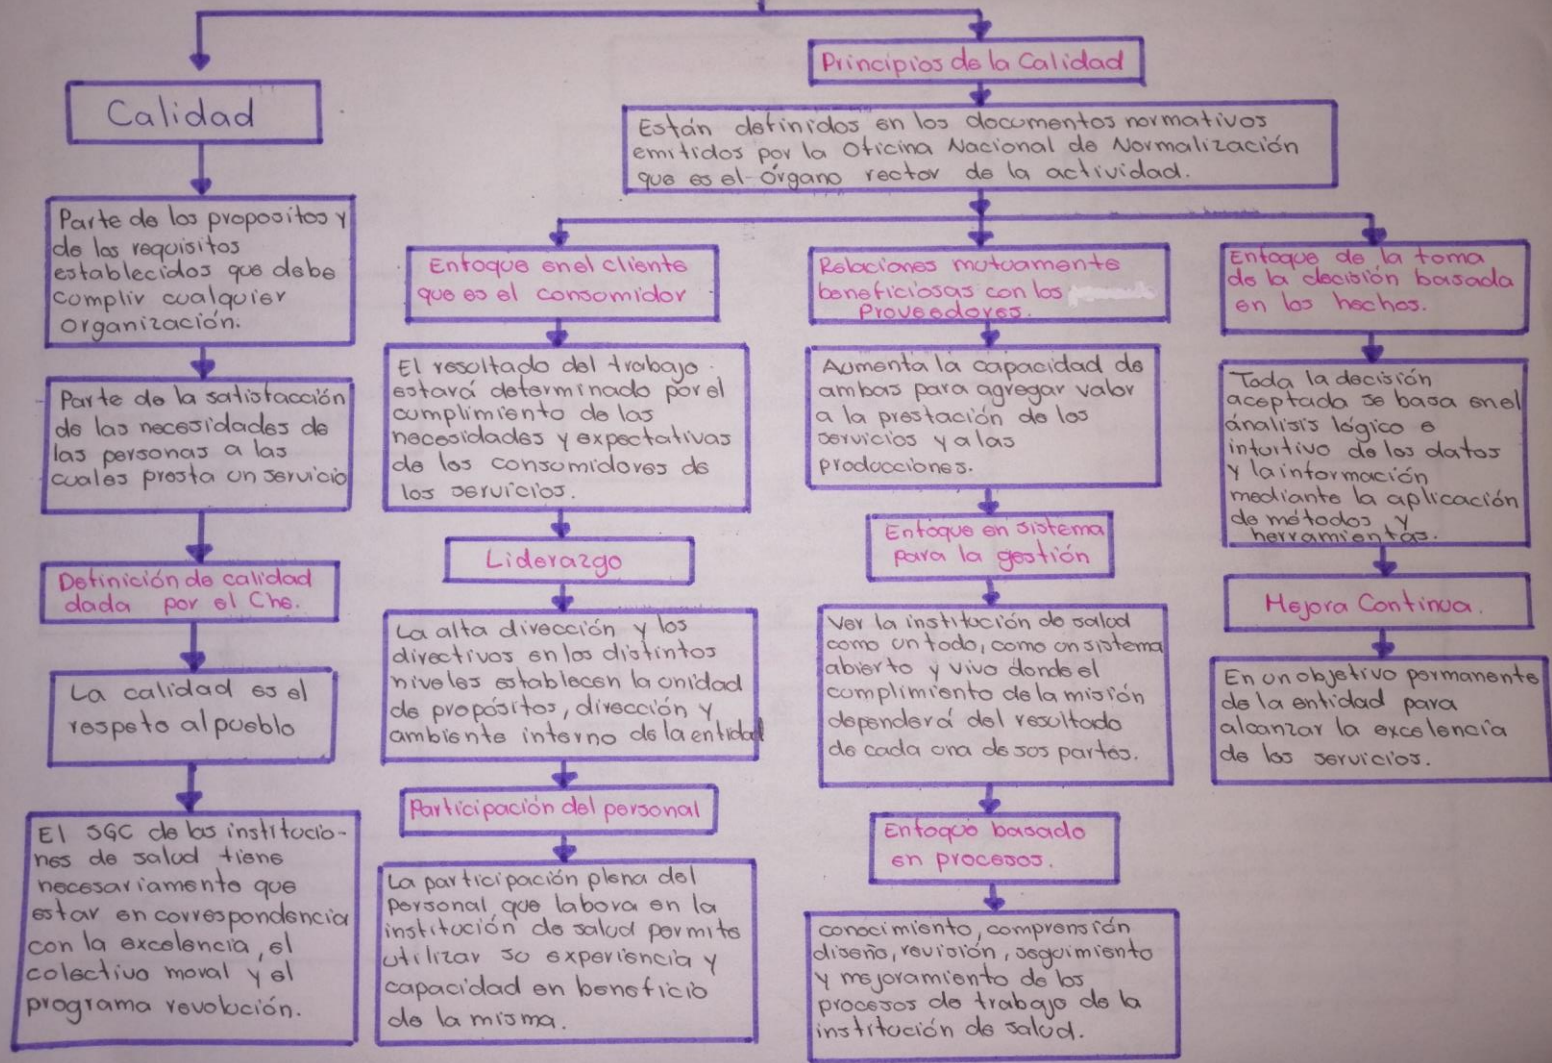 Calidad
Parte de los propositos y
de los requisitos
establecidos que debe
cumplir cualquier
organización.
Parte de la satisfacción
de las necesidades de
las personas a las
cuales presta un servicio
Definición de calidad
dada por el Che.
La calidad es el
respeto al pueblo
El SGC de las institucio-
nes de salud tiene
necesariamente que
estar en correspondencia
con la excelencia, el
colectivo moral y el
programa revolución.
Principios de la Calidad
Están definidos en los documentos normativos
emitidos por la Oficina Nacional de Normalización
que es el órgano rector de la actividad.
Enfoque en el cliente
que es el consumidor
El resultado del trabajo
estará determinado por el
cumplimiento de las
necesidades y expectativas
de los consumidores de
los servicios.
Liderazgo
La alta dirección y los
directivos en los distintos
niveles establecen la unidad
de propósitos, dirección y
ambiente interno de la entidad
Participación del personal
La participación plena del
personal que labora en la
institución de salud permite
utilizar su experiencia y
capacidad en beneficio
de la misma.
Relaciones mutuamente
beneficiosas con los
Proveedores.
Aumenta la capacidad de
ambas para agregar valor
a la prestación de los
servicios y a las
producciones.
Enfoque en sistema
para la gestión
Ver la institución de salud
como un todo, como un sistema
abierto y vivo donde el
cumplimiento de la misión
dependerá del resultado
de cada una de sus partes.
Enfoque basado
en procesos.
conocimiento, comprensión
diseño, revisión, seguimiento
y mejoramiento de los
procesos de trabajo de la
institución de salud.
Enfoque de la toma
de la decisión basada
en los hechos.
Toda la decisión
aceptada se basa en el
ánalisis lógico e
intuitivo de los datos
y la información
mediante la aplicación
de métodos y
herramientas.
Mejora Continua.
En un objetivo permanente
de la entidad para
alcanzar la excelencia
de los servicios.